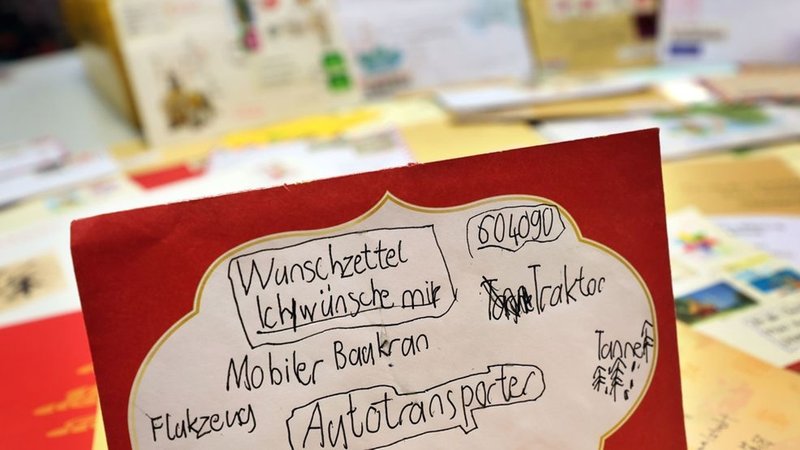 Wunschzettel
Ich wünsche mir
604090
Traktor
Mobiler Baakran
Tanne
Flukzeug
Autotransporter